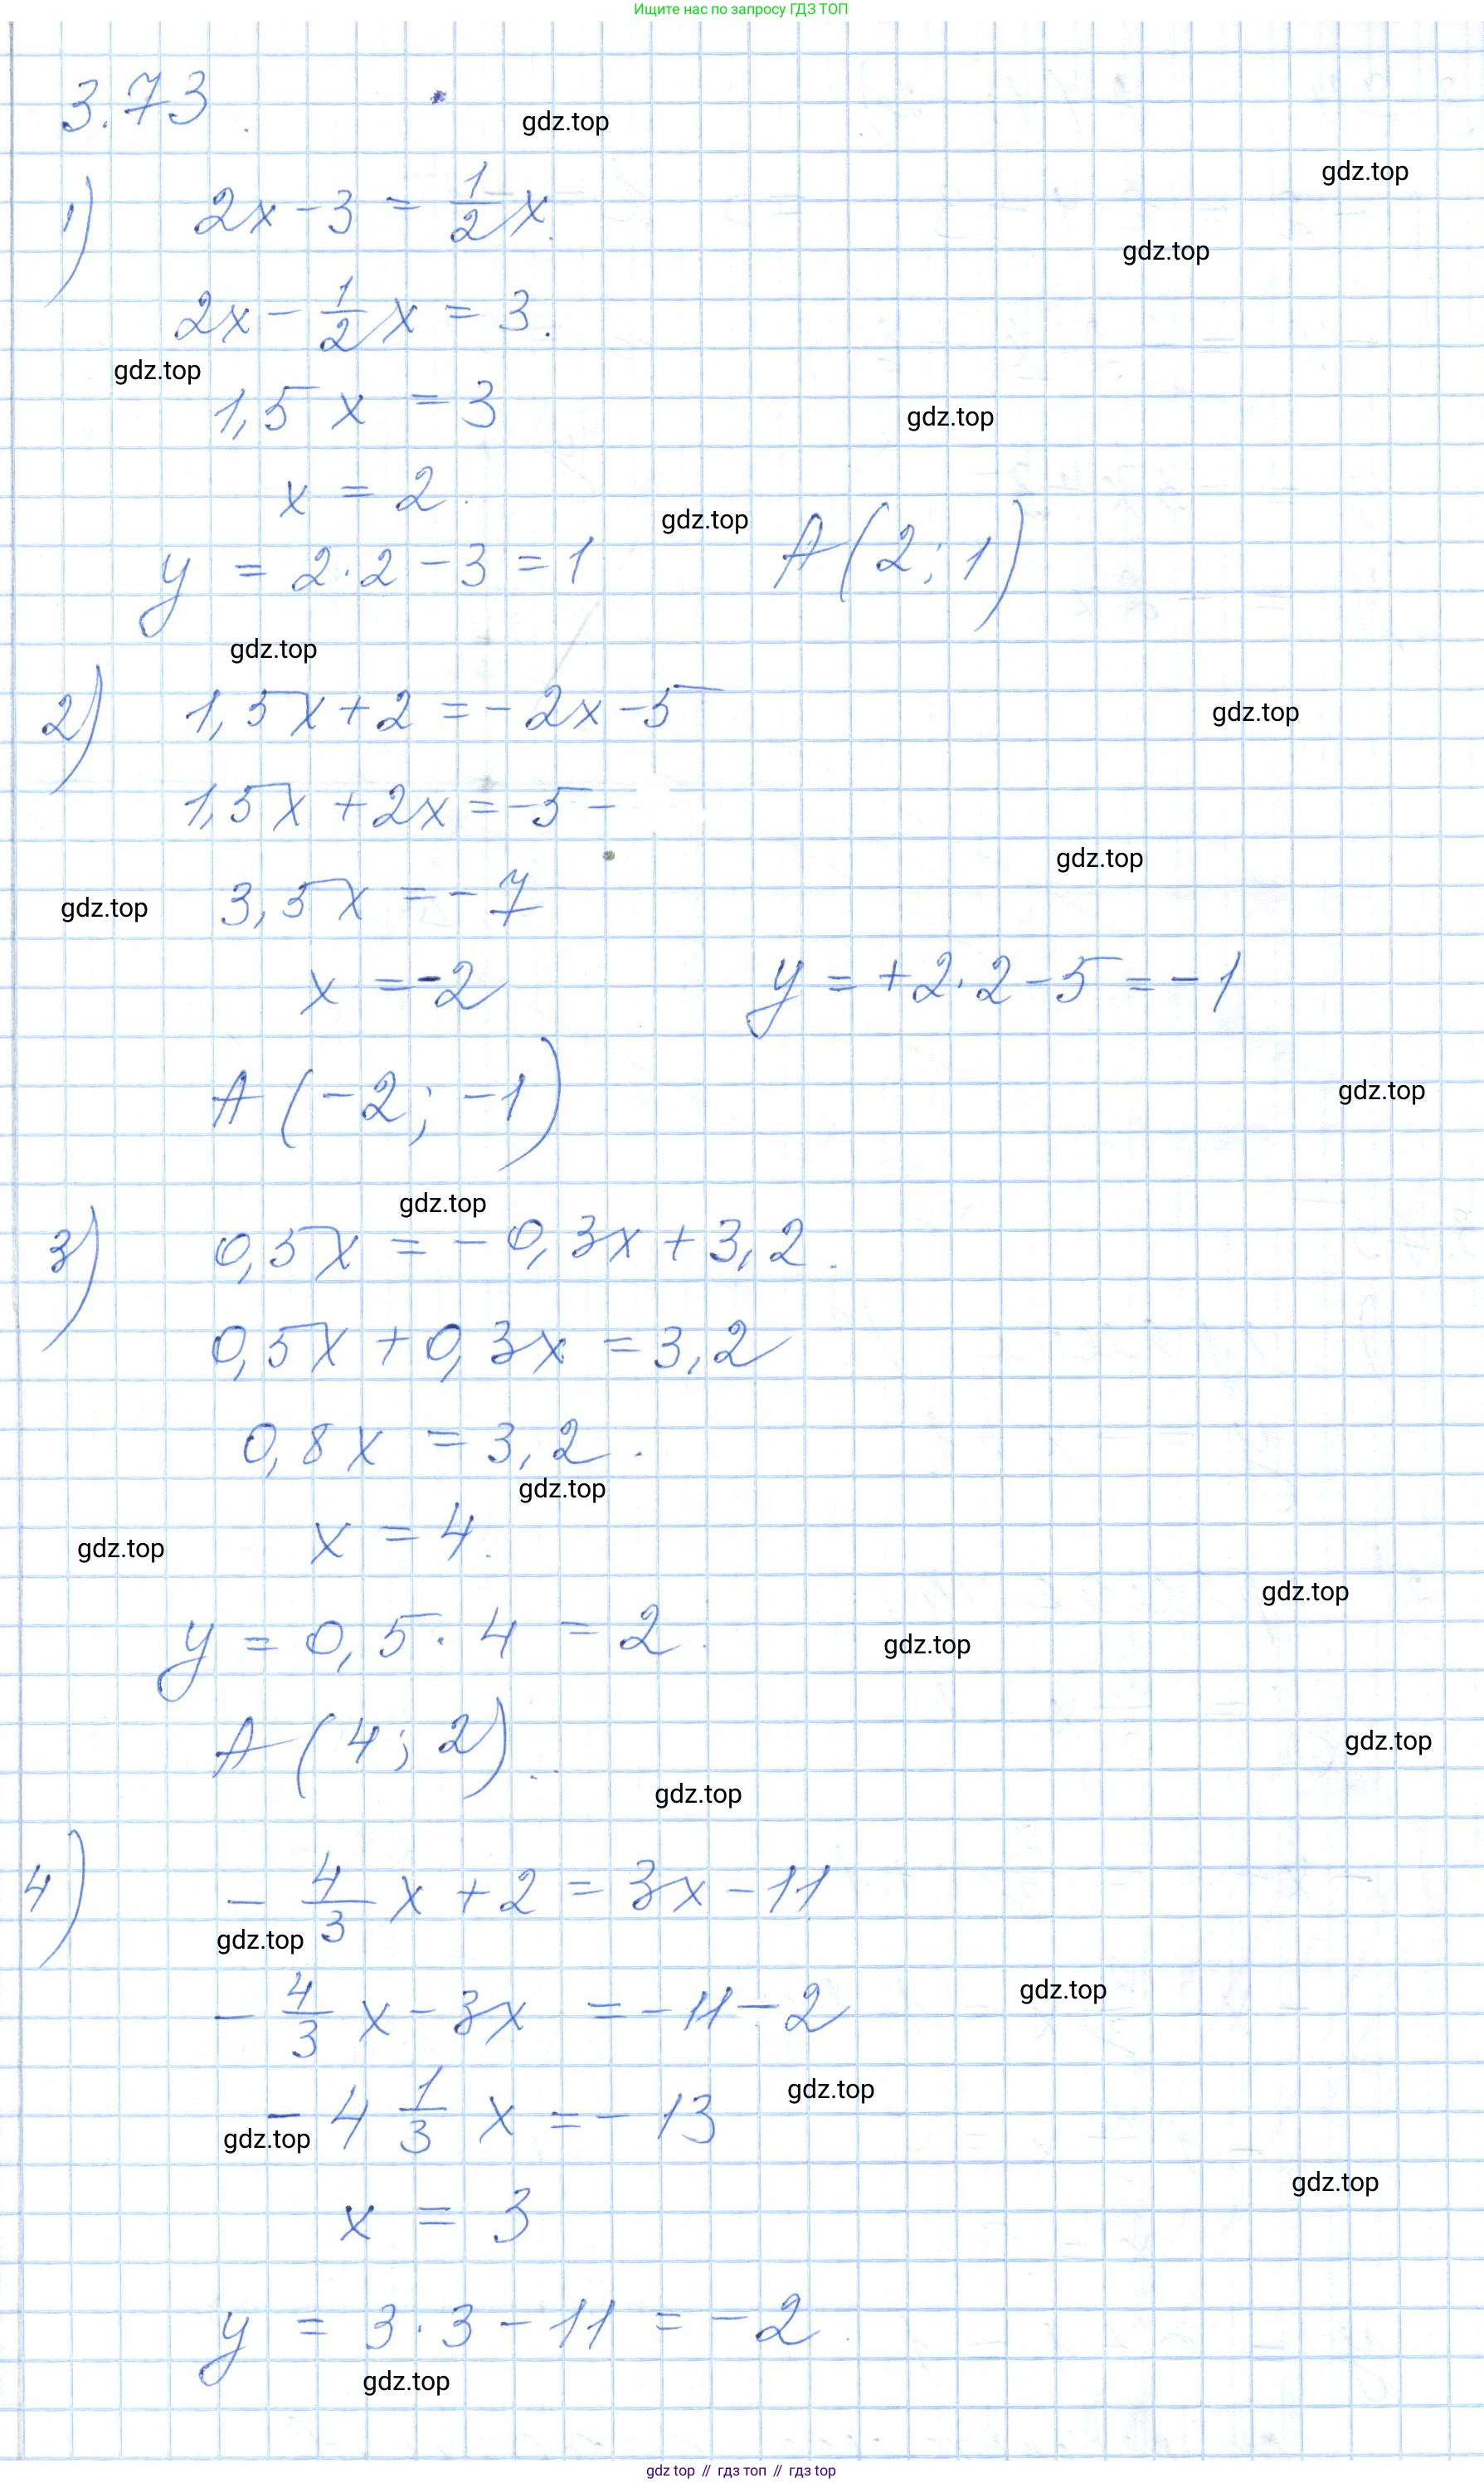 Ищите нас по запросу ГДЗ ТОП
3.73.
gdz.top
gdz.top
1) 2x - 3 = 1/2 x
gdz.top
2x - 1/2 x = 3.
gdz.top
1,5x = 3
gdz.top
x = 2.
gdz.top
y = 2·2 - 3 = 1 A(2; 1)
gdz.top
2) 1,5x + 2 = -2x - 5
gdz.top
1,5x + 2x = -5 -
gdz.top
3,5x = -7
gdz.top
x = -2 y = +2·2 - 5 = -1
A(-2; -1)
gdz.top
gdz.top
3) 0,5x = -0,3x + 3,2.
0,5x + 0,3x = 3,2
0,8x = 3,2.
gdz.top
x = 4.
gdz.top
gdz.top
y = 0,5·4 = 2.
gdz.top
A(4; 2).
gdz.top
gdz.top
4) - 4/3 x + 2 = 3x - 11
gdz.top
- 4/3 x - 3x = -11 - 2
gdz.top
gdz.top
- 4 1/3 x = -13
gdz.top
gdz.top
x = 3
y = 3·3 - 11 = -2.
gdz.top
gdz top // гдз топ // гдз top